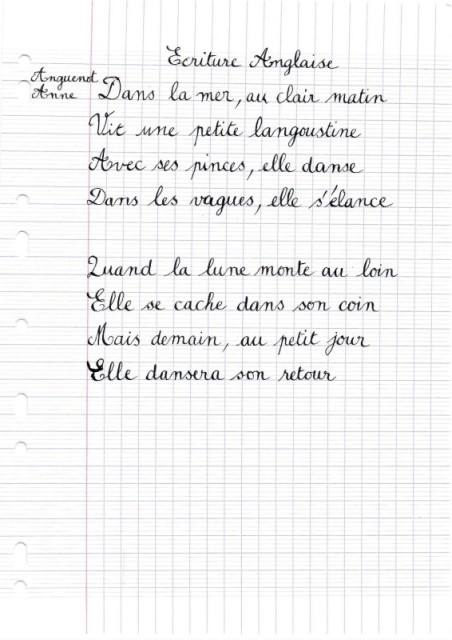 Ecriture Anglaise
Anguenot
Anne
Dans la mer, au clair matin
Vit une petite langoustine
Avec ses pinces, elle danse
Dans les vagues, elle s'élance
Quand la lune monte au loin
Elle se cache dans son coin
Mais demain, au petit jour
Elle dansera son retour